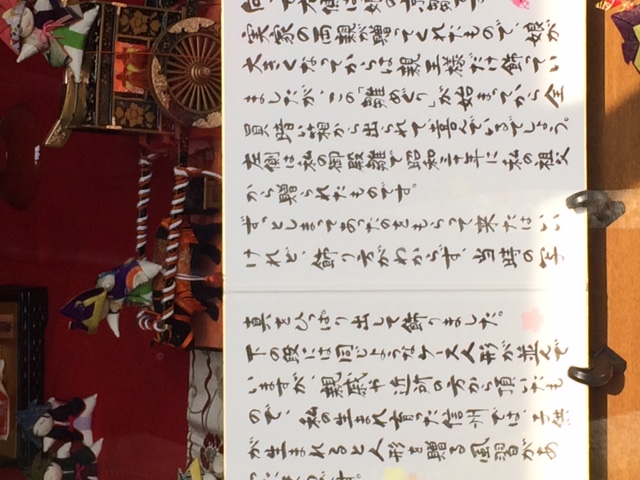 実家の両親が贈ってくれたもので、娘が
大きくなってからは親王様だけ飾ってい
ましたが、この「雛めぐり」が始まってから全
員暗い箱から出られて、喜んでいるでしょう。
左側は私の御殿雛で昭和三十年に私の祖父
から贈られたものです。
ずっとしまってあったのをもらって来たはい
けれど、飾り方がわからず、当時の写
真をひっぱり出して飾りました。
下の段には同じようなケース人形が並んで
いますが、親戚や近所の方から頂いたも
ので、私の生まれ育った信州では、子供
が生まれると人形を贈る風習があ